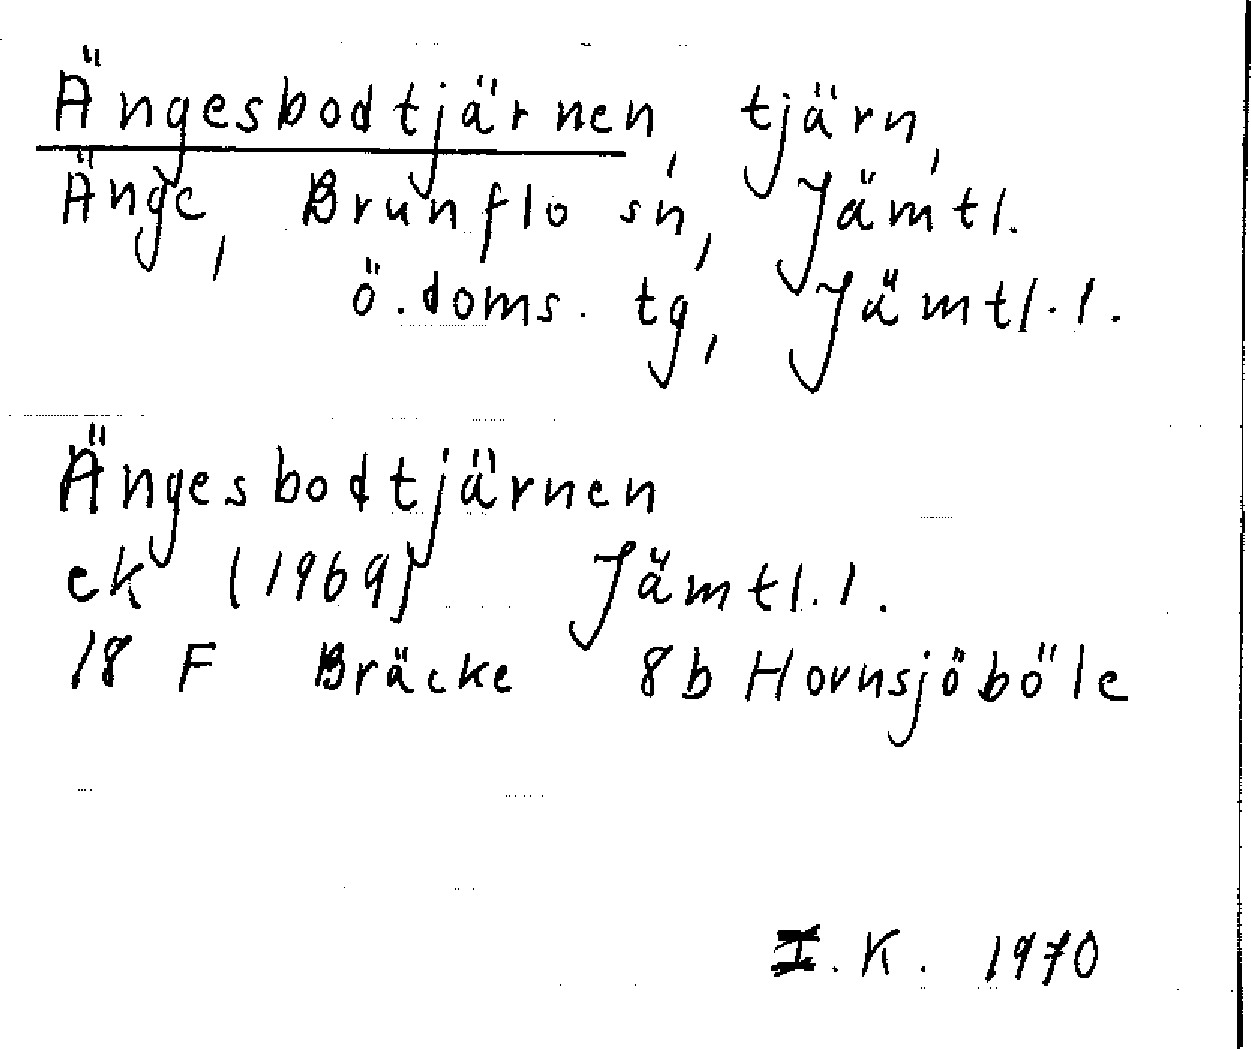 Ängesbodtjärnen, tjärn,
Änge, Brunflo sn, Jämtl.
ö. doms. tg, Jämtl. l.
Ängesbodtjärnen
ek (1969) Jämtl. l.
18 F Bräcke 8b Hornsjöböle
I. K. 1970